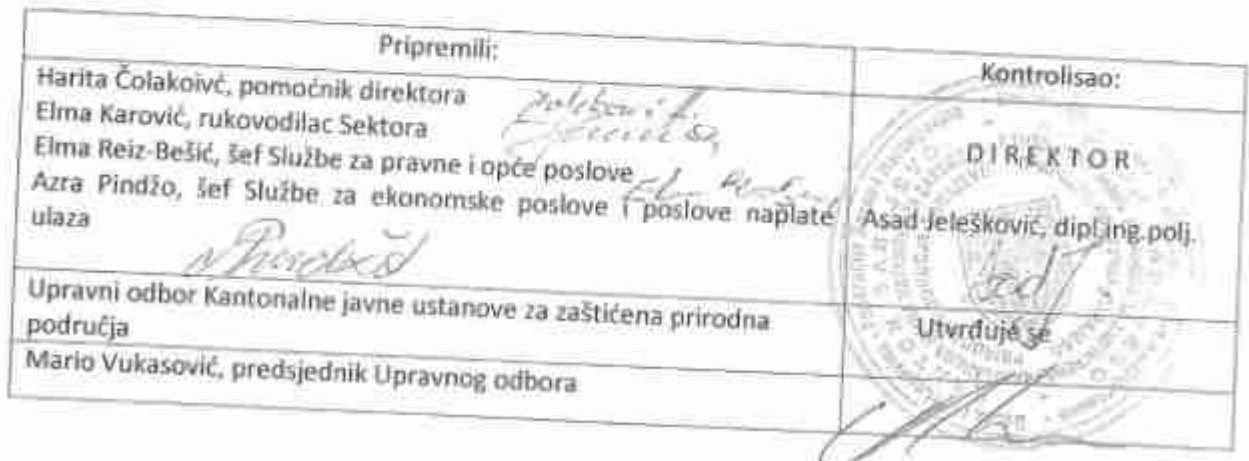 Pripremili:
Kontrolisao:
Harita Čolakoivć, pomoćnik direktora
Elma Karović, rukovodilac Sektora
Elma Reiz-Bešić, šef Službe za pravne i opće poslove
Azra Pindžo, šef Službe za ekonomske poslove i poslove naplate
ulaza
DIREKTOR
Asad Jelešković, dipl.ing.polj.
Upravni odbor Kantonalne javne ustanove za zaštićena prirodna
područja
Utvrđuje se
Mario Vukasović, predsjednik Upravnog odbora